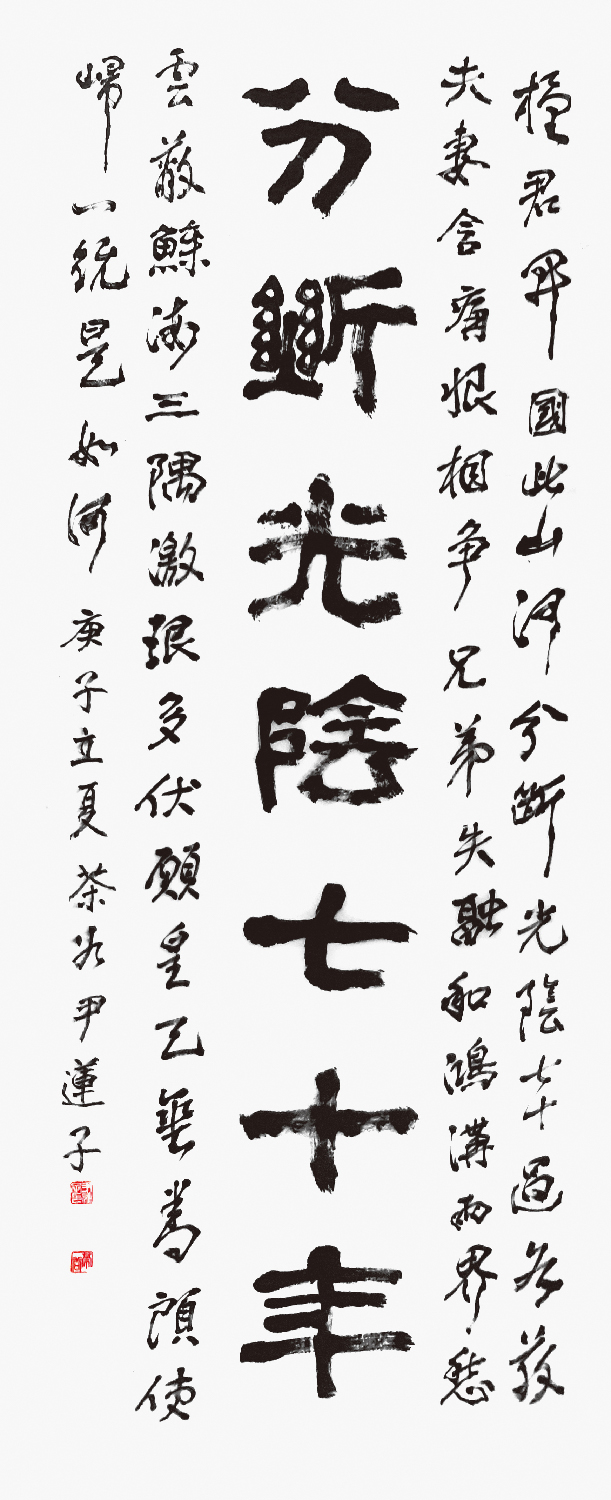 檀君開國此山河分斷光陰七十過各散
夫妻含痛恨相爭兄弟失融和鴻溝兩界愁
分斷光陰七十年
雲蔽鰈海三隅激浪多伏願皇天垂眷顧使
歸一統是如何 庚子立夏 茶谷 尹蓮子